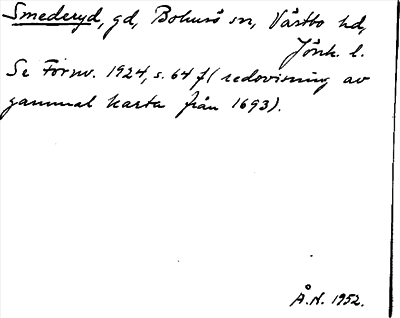 Smederyd, gd, Bohusö sn, Västbo hd,
Jönk. l.
Se Fornv. 1924, s. 64 f (redovisning av
gammal karta från 1693).
Å.N. 1952.